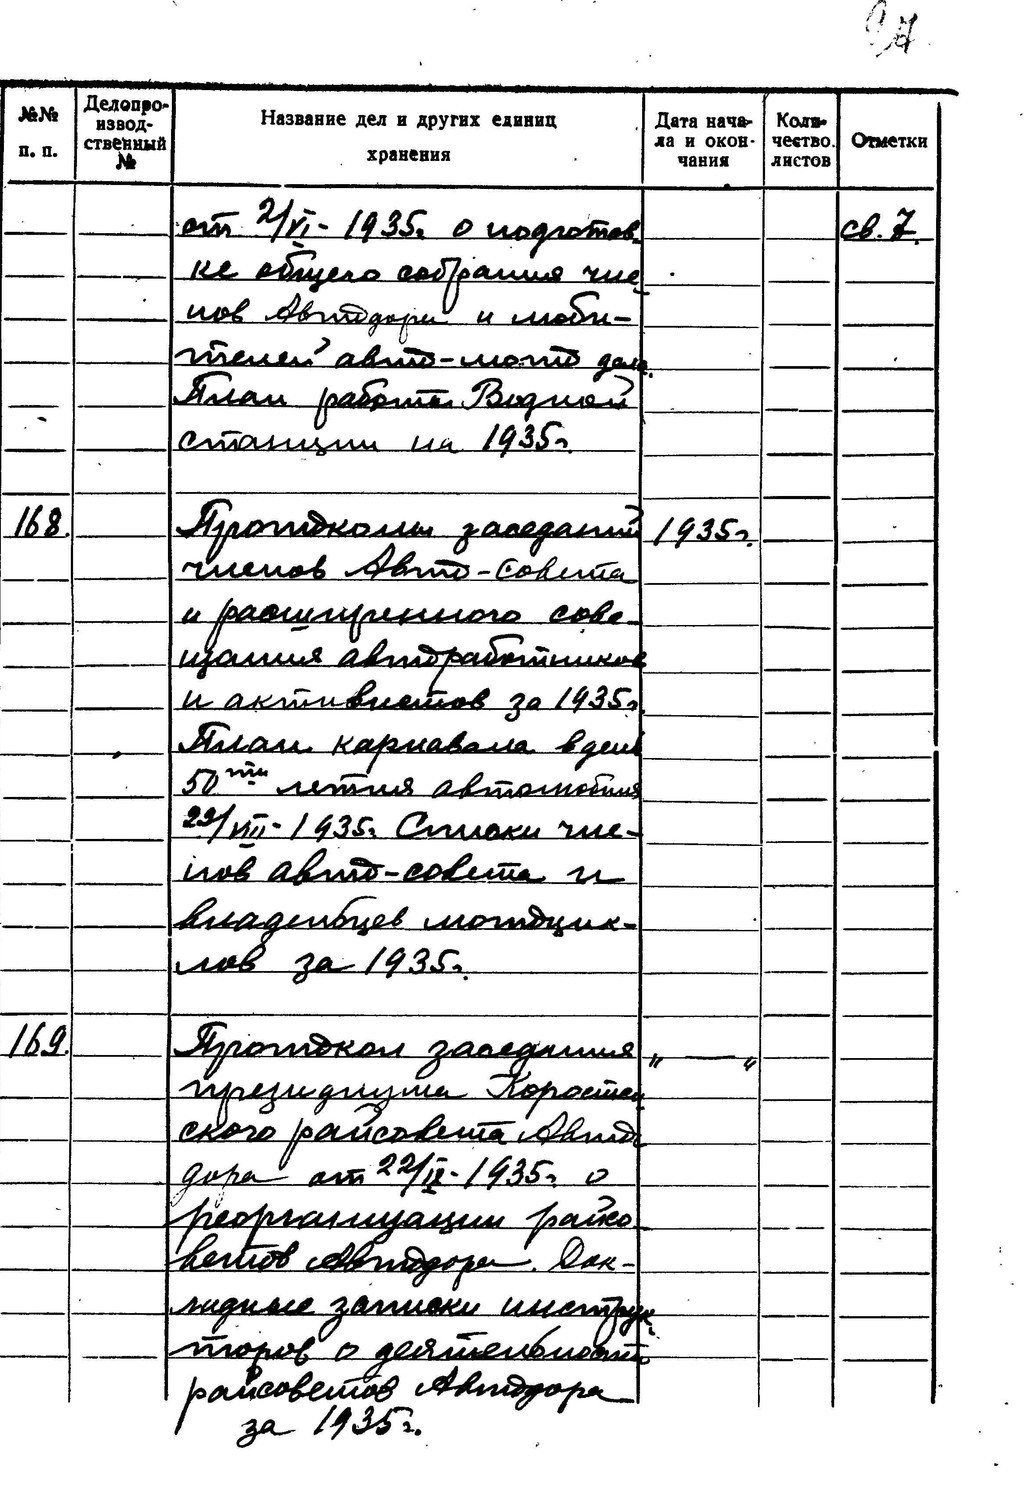 №№ п. п.
Делопро-
извод-
ственный
№
Название дел и других единиц
хранения
Дата нача-
ла и окон-
чания
Коли-
чество
листов
Отметки
от 2/VI - 1935г. о подготов- св. 7.
ке общего собрания чле-
нов Автодора и люби-
телей авто-мото дела.
План работы Водной
станции на 1935г.
168. Протоколы заседаний 1935г.
членов Авто-совета
и расширенного сове-
щания автоработников
и активистов за 1935г.
План карнавала в день
50ти летия автомобиля
22/VIII - 1935г. Списки чле-
нов авто-совета и
владельцев мотоцик-
лов за 1935г.
169. Протокол заседания „ — „
президиума Коростен
ского райсовета Авто
дора от 22/IX - 1935г. о
реорганизации райсо
ветов Автодора. Док-
ладные записки инструк-
торов о деятельности
райсоветов Автодора
за 1935г.